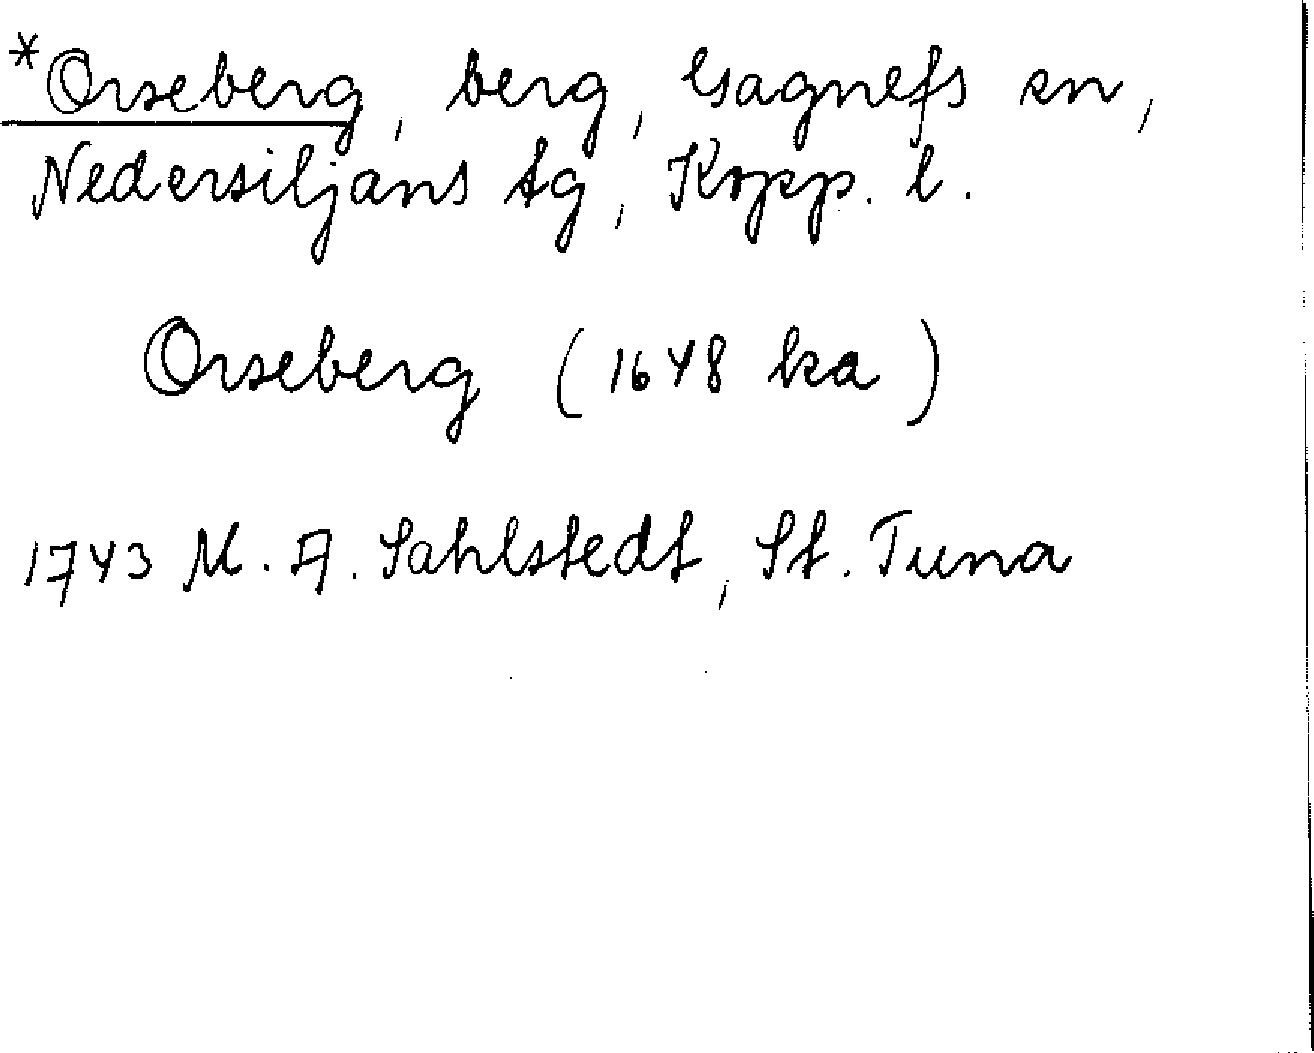 *Orseberg, berg, Gagnefs sn,
Nedersiljans tg, Kopp. l.
Orseberg (1648 ka)
1743 M. A. Sahlstedt, St. Tuna